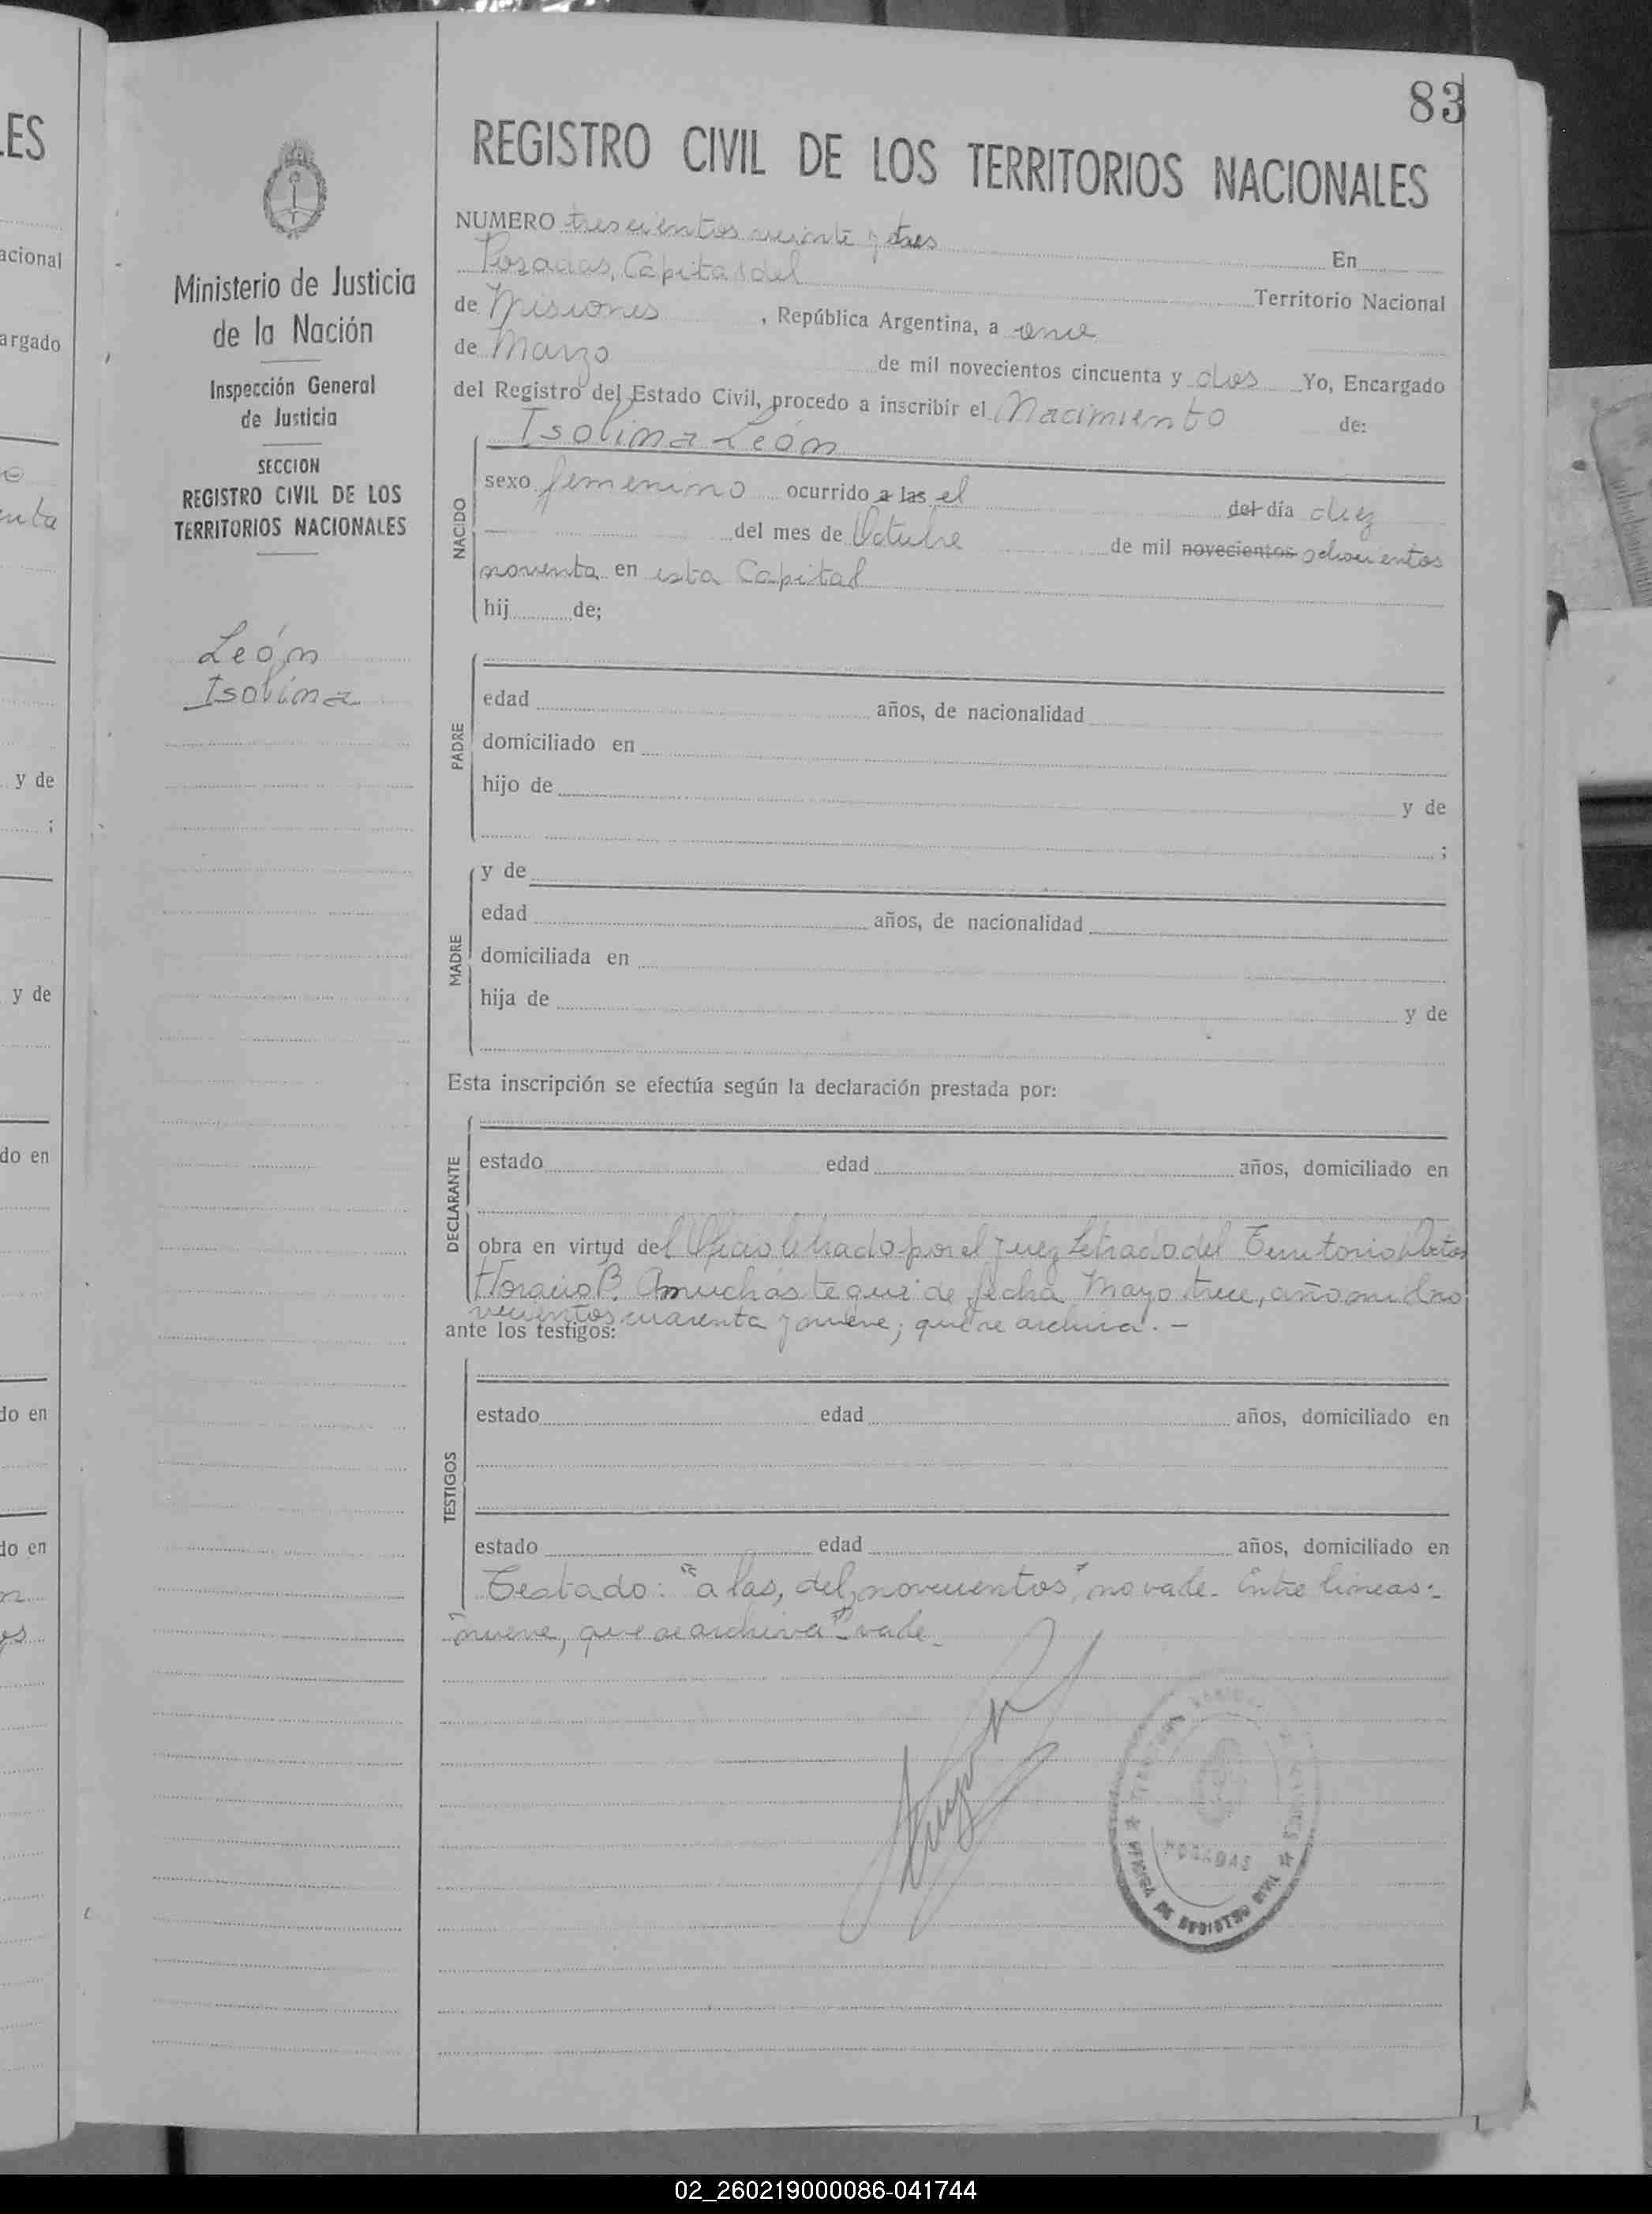 83
REGISTRO CIVIL DE LOS TERRITORIOS NACIONALES
NUMERO trescientos veinte y tres En
Posadas, Capital del Territorio Nacional
de Misiones, República Argentina, a once
de Marzo de mil novecientos cincuenta y dos Yo, Encargado
del Registro del Estado Civil, procedo a inscribir el Nacimiento de:
Isolina León
NACIDO
sexo femenino ocurrido a las el del día diez
del mes de Octubre de mil novecientos ochocientos
noventa en esta Capital
hij de;
PADRE
edad años, de nacionalidad
domiciliado en
hijo de y de
;
MADRE
y de
edad años, de nacionalidad
domiciliada en
hija de y de
Esta inscripción se efectúa según la declaración prestada por:
DECLARANTE
estado edad años, domiciliado en
obra en virtud del Oficio librado por el Juez Letrado del Territorio
Horacio B. Amuchástegui de fecha Mayo trece, año mil no
vecientos cuarenta y nueve; que se archiva. -
ante los testigos:
TESTIGOS
estado edad años, domiciliado en
estado edad años, domiciliado en
Testado: "a las, del, novecientos", no vale. Entre lineas:
"nueve, que se archiva" - vale.
POSADAS
OFICINA DE REGISTRO CIVIL
Ministerio de Justicia
de la Nación
Inspección General
de Justicia
SECCION
REGISTRO CIVIL DE LOS
TERRITORIOS NACIONALES
León
Isolina
LES
acional
argado
y de
;
y de
do en
do en
do en
02_260219000086-041744